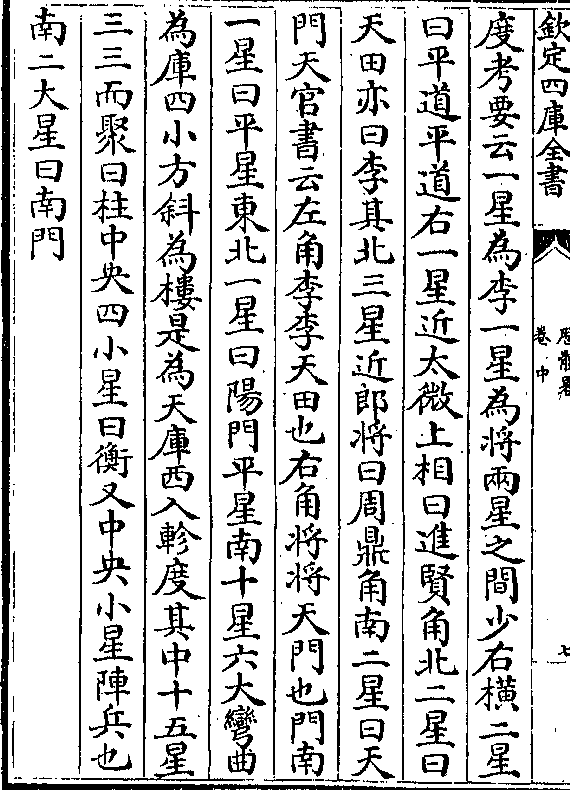 欽定四庫全書
曆體畧
卷中
七
度考要云一星為李一星為將兩星之間少右橫二星
曰平道平道右一星近太微上相曰進賢角北二星曰
天田亦曰李其北三星近郎将曰周鼎角南二星曰天
門天官書云左角李李天田也右角將將天門也門南
一星曰平星東北一星曰陽門平星南十星六大彎曲
為庫四小方斜為樓是為天庫西入軫度其中十五星
三三而聚曰柱中央四小星曰衡又中央小星陣兵也
南二大星曰南門